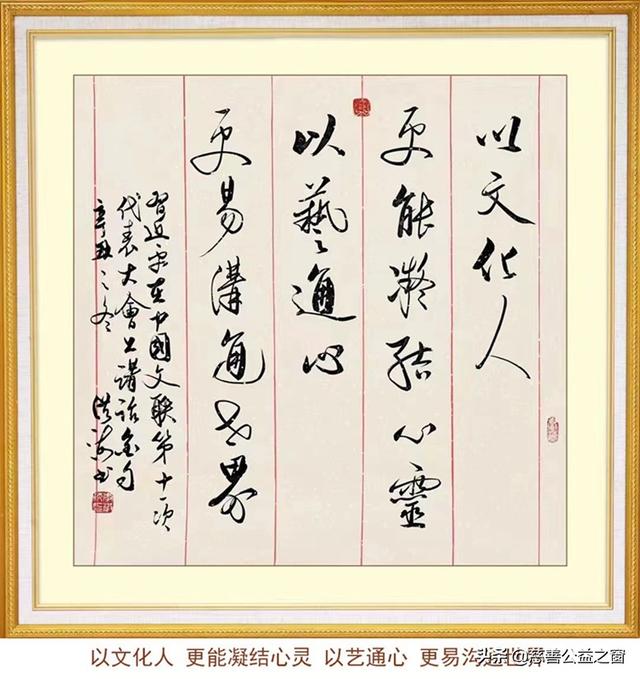 以文化人
更能凝结心靈
以藝通心
更易溝通世界
習近平在中國文聯第十一次
代表大會上講話金句
辛丑之冬
以文化人 更能凝结心灵 以艺通心 更易沟通世界
头条@慈善公益之窗